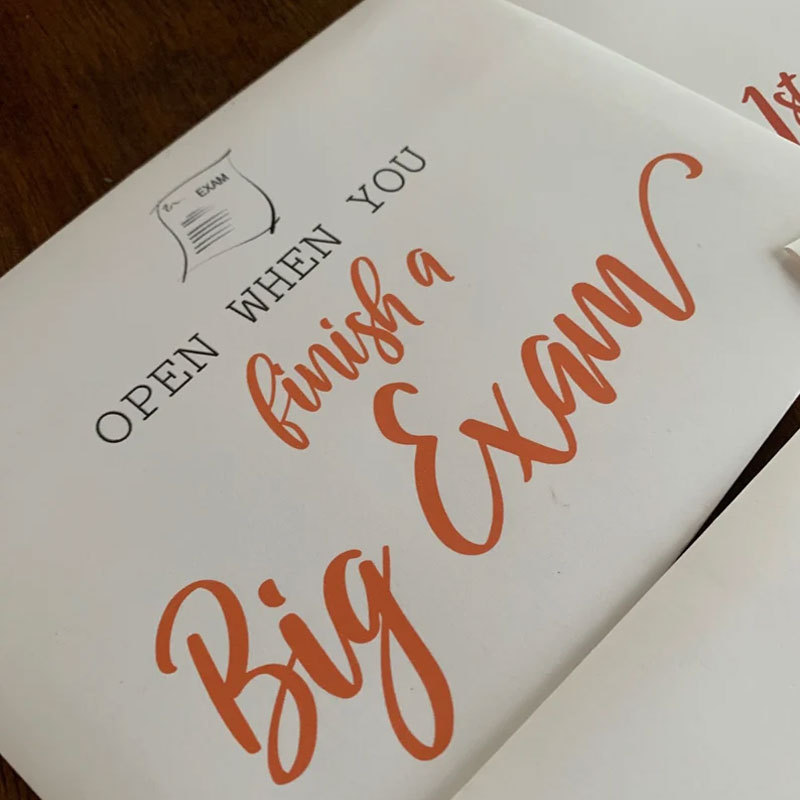 EXAM
OPEN WHEN YOU
finish a
Big Exam
1st